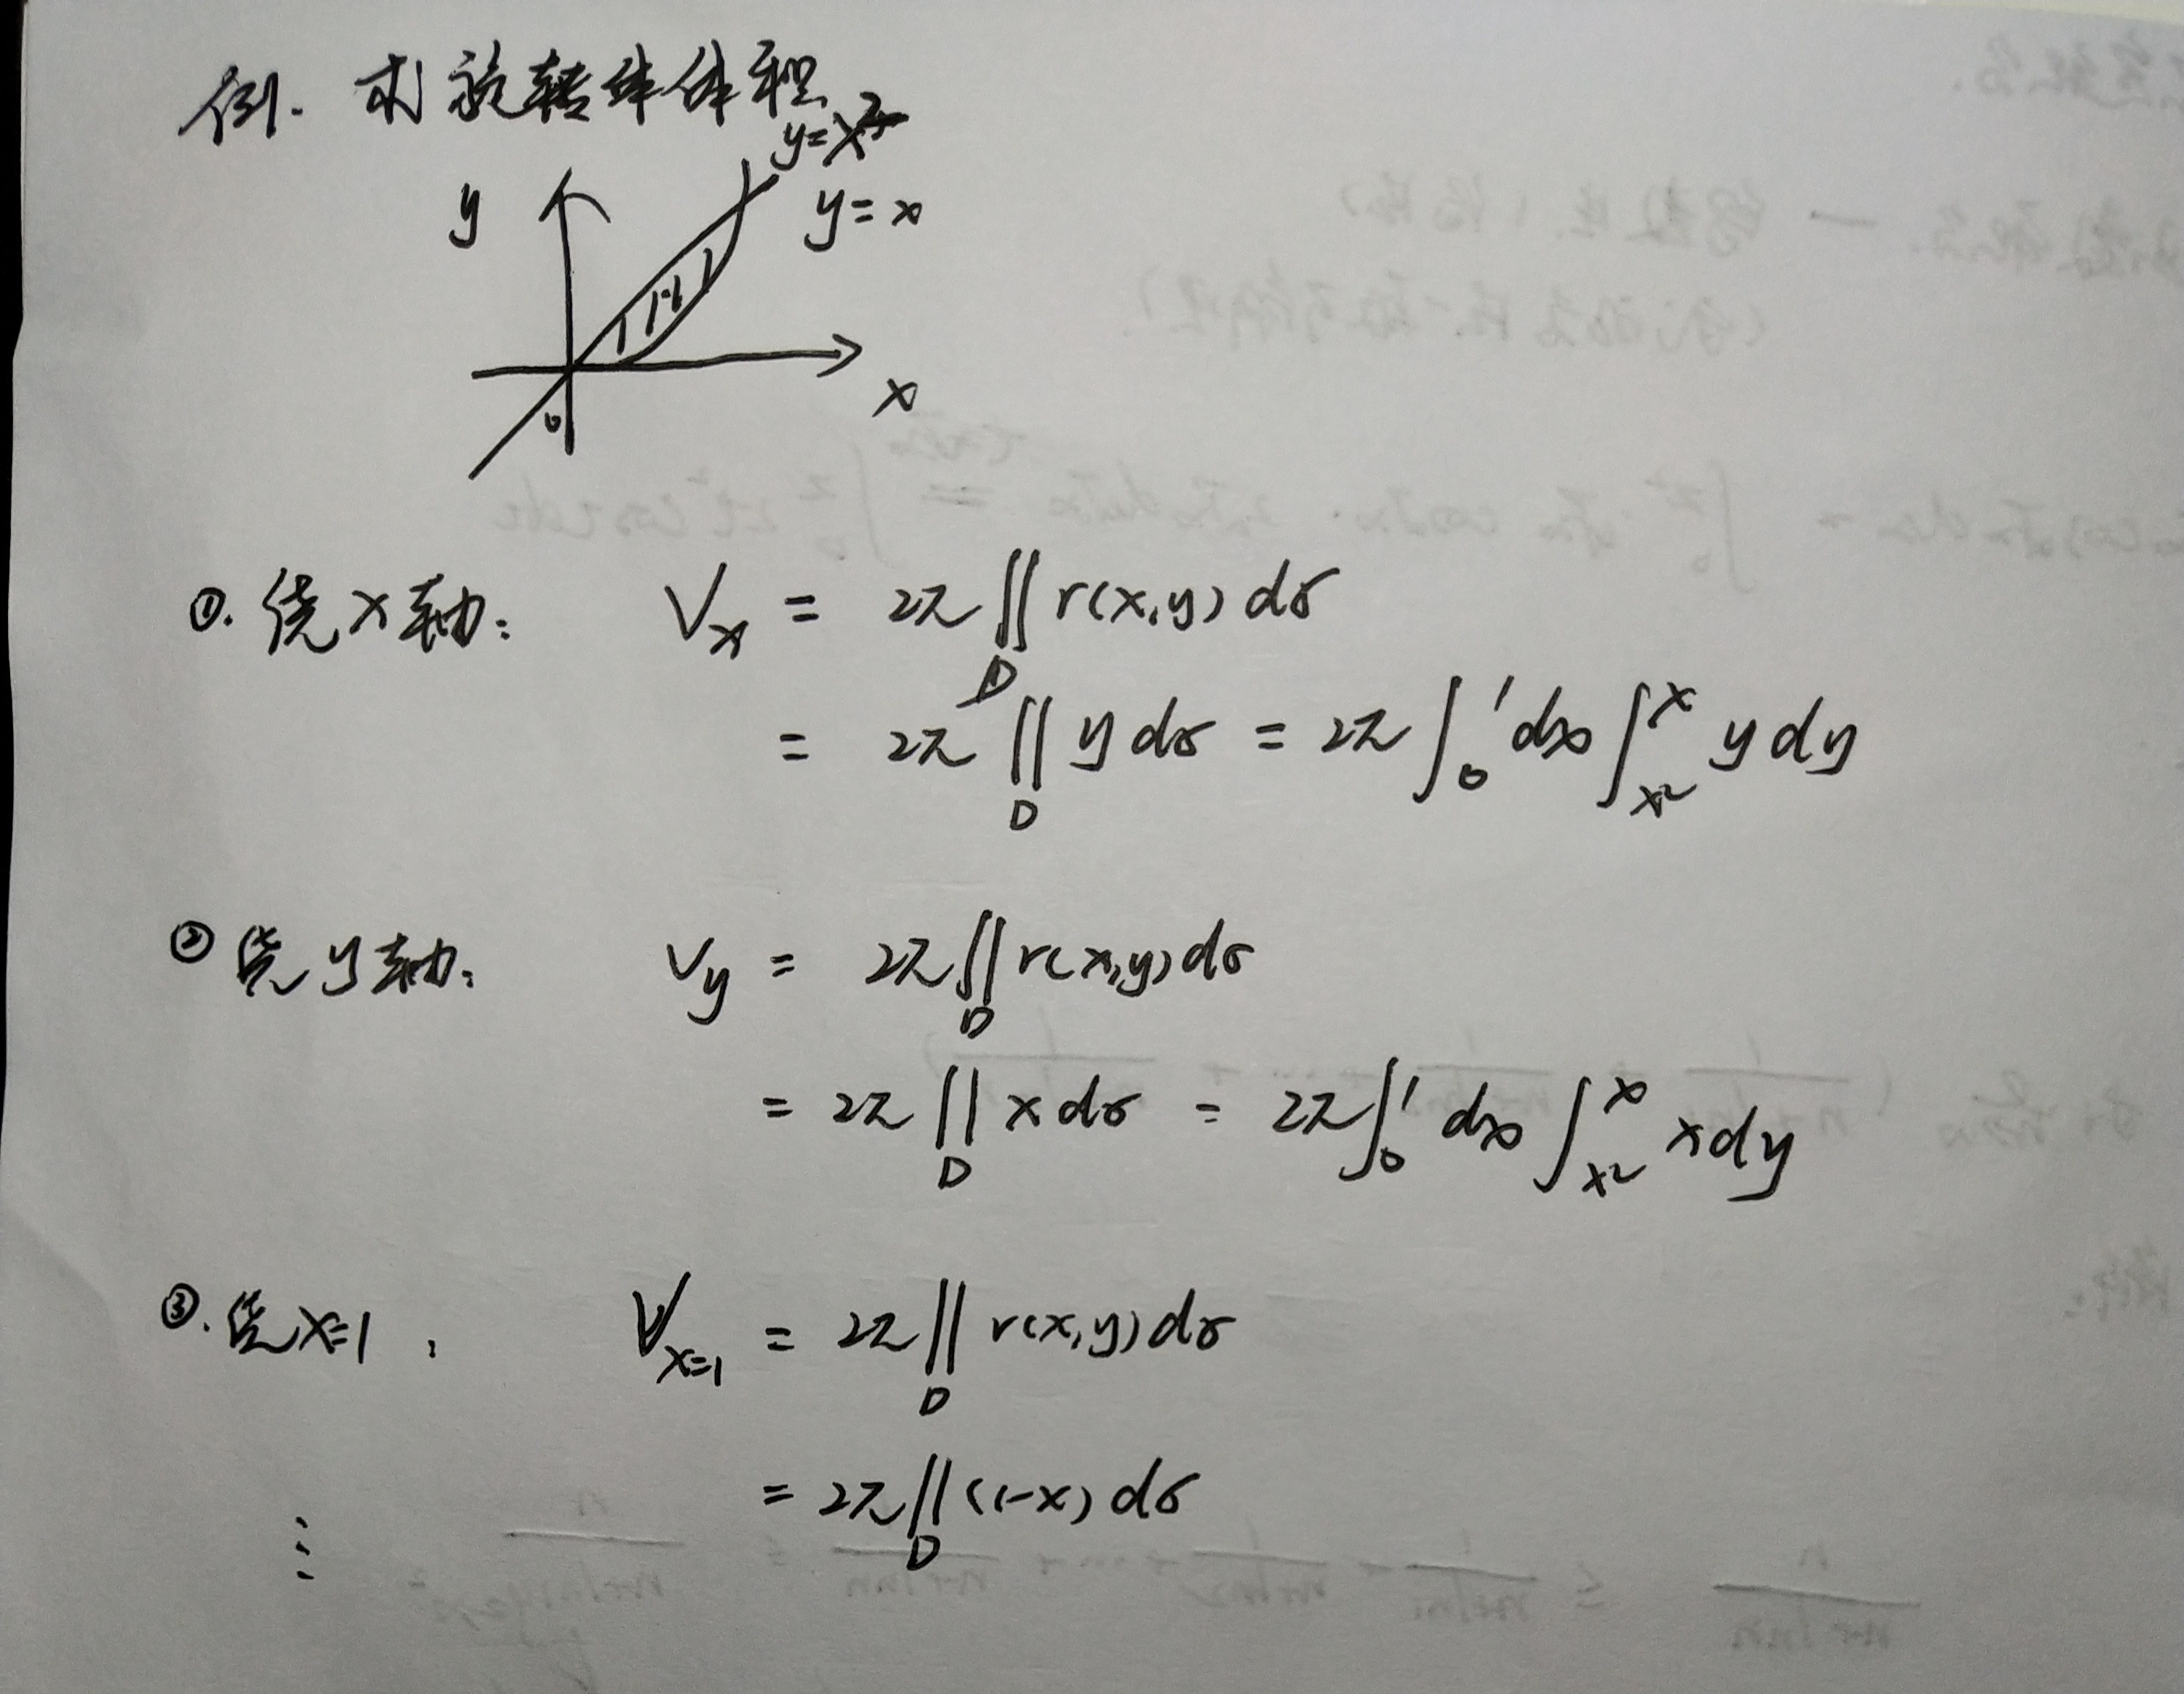 例. 求旋转体体积
y=x²
y
y=x
x
0
①. 绕x轴: Vₓ = 2π∬_D r(x,y) dσ
= 2π∬_D y dσ = 2π∫₀¹dx∫_{x²}^{x} y dy
② 绕y轴: V_y = 2π∬_D r(x,y) dσ
= 2π∬_D x dσ = 2π∫₀¹ dx∫_{x²}^{x} x dy
③. 绕x=1: V_{x=1} = 2π∬_D r(x,y) dσ
= 2π∬_D (1-x) dσ
⋮